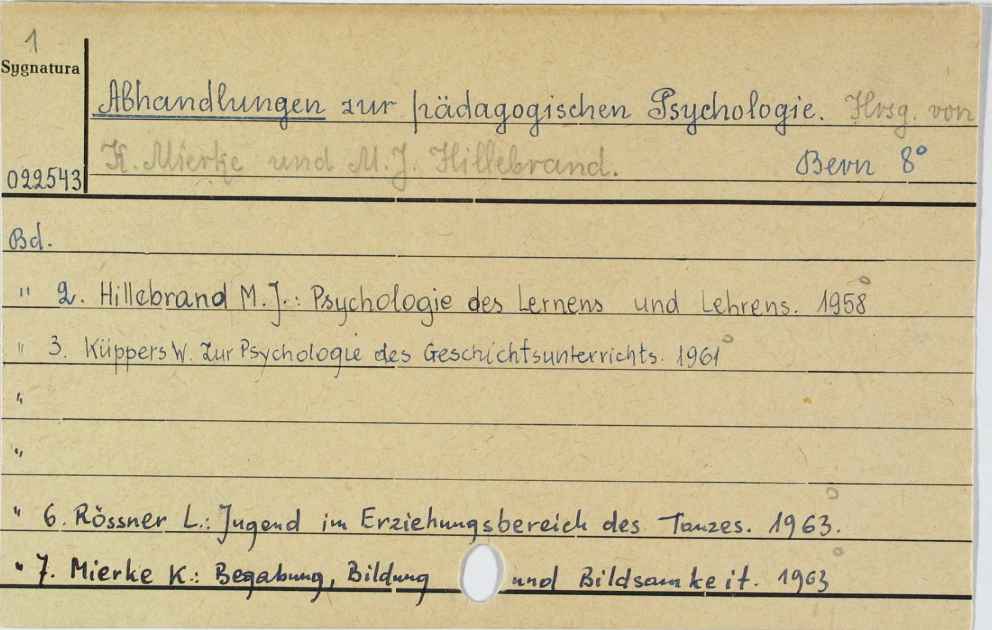 1
Sygnatura
Abhandlungen zur pädagogischen Psychologie. Hrsg. von
K. Mierke und M.J. Hillebrand. Bern 8°
022543
Bd.
" 2. Hillebrand M.J.: Psychologie des Lernens und Lehrens. 1958°
" 3. Küppers W. Zur Psychologie des Geschichtsunterrichts. 1961°
"
"
" 6. Rössner L.: Jugend im Erziehungsbereich des Tanzes. 1963.°
" 7. Mierke K.: Begabung, Bildung und Bildsamkeit. 1963°